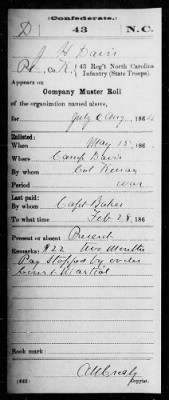 (Confederate.)
D 43 N.C.
J. H. Davis
Pvt, Co. K, 43 Reg't North Carolina
Infantry (State Troops).
Appears on
Company Muster Roll
of the organization named above,
for July & Aug, 186
Enlisted:
When May 15, 186
Where Camp Davis
By whom Col Kenan
Period war
Last paid:
By whom Capt Baker
To what time Feb 28, 186
Present or absent Present
Remarks: $22 two months
Pay stopped by order
Court Martial
Book mark:
(642) Copyist.